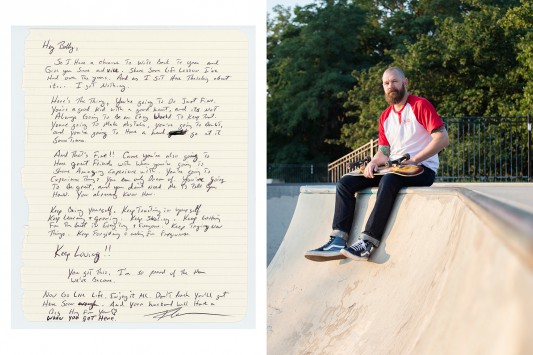 Hey Bobby,
So I have a chance to write back to you and
Give you some advice. Share some life lessons I've
had over the years. And as I sit here thinking about
it... I got nothing.
Here's the thing, you're going to do just fine.
You're a good kid with a good heart, and it's not
always going to be an easy world to keep that.
You're going to make mistakes, you're going to doubt,
and you're going to have a hard go at it
sometimes.
And that's fine!! Cause you're also going to
have great friends with whom you're going to
share amazing experiences with. You're going to
experience things you can only dream of. You're going
to be great, and you don't need me to tell you
how. You already know how.
Keep being yourself. Keep trusting in yourself.
Keep learning + growing. Keep skating. Keep looking
for the best in everything + everyone. Keep trying new
things. Keep forgiving + asking for forgiveness.
Keep Loving!!
You got this, I'm so proud of the man
we've become.
Now go live life. Enjoy it all. Don't rush you'll get
here soon enough. And your husband will have a
big hug for you
when you get here.